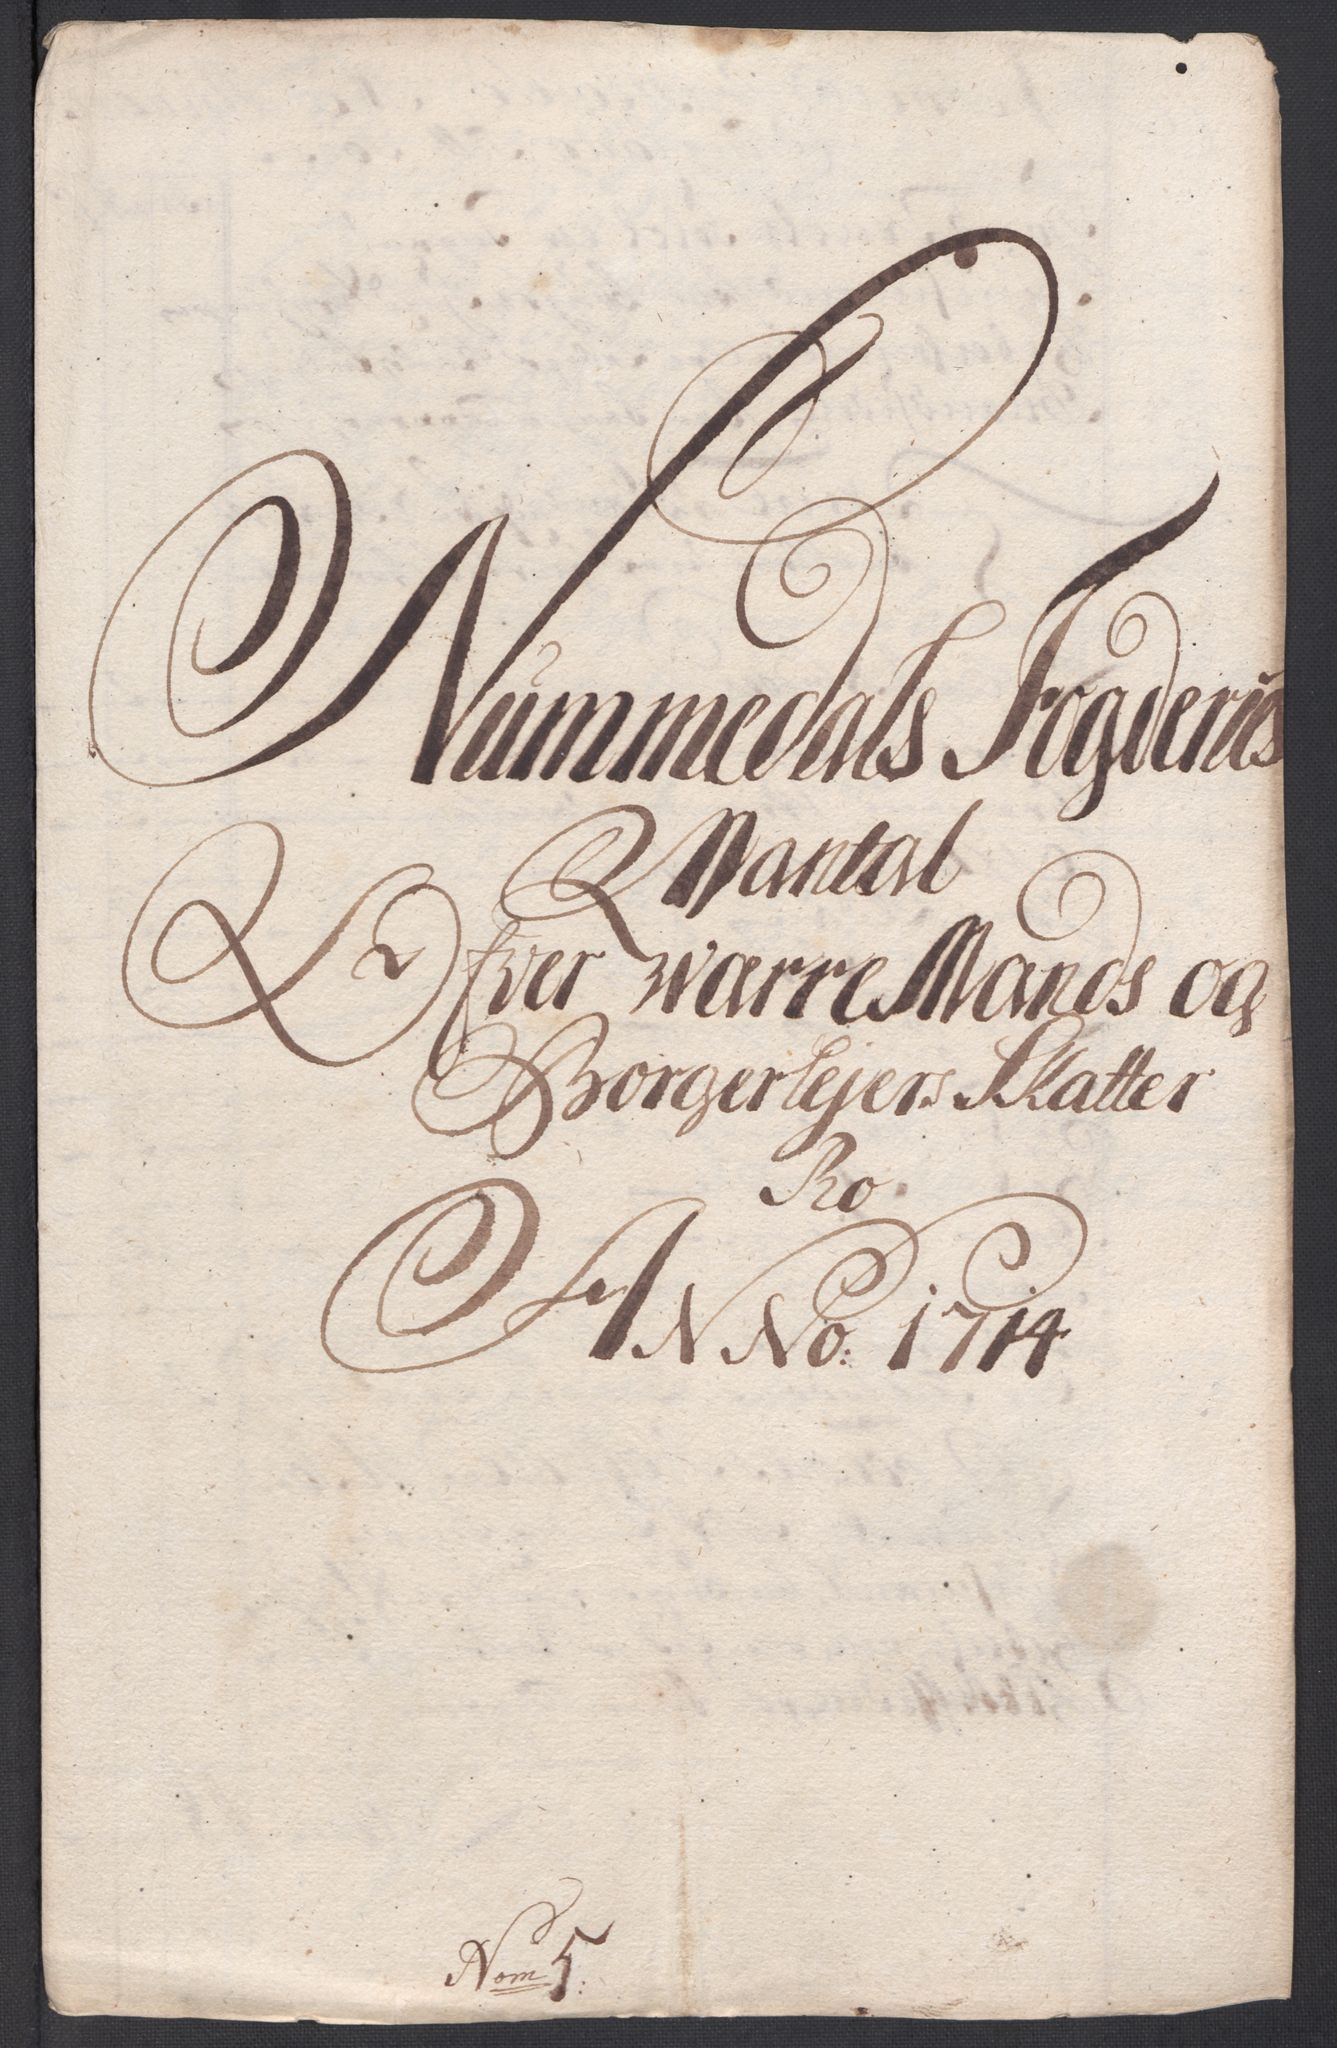 Nummedals Fogderies
Mantal
Ofver warre Mands og
Borgerlejers Skatter
Pro
ANNo: 1714
Nom 5: